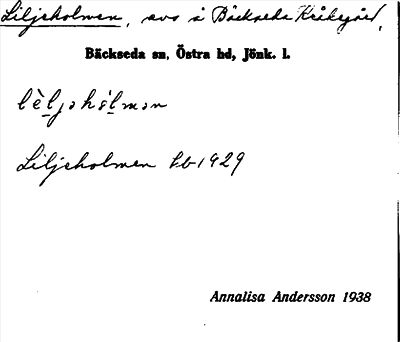 Liljeholmen, avs å Bäckseda Kråkegård,
Bäckseda sn, Östra hd, Jönk. l.
lèljəhólmən
Liljeholmen kb 1929
Annalisa Andersson 1938